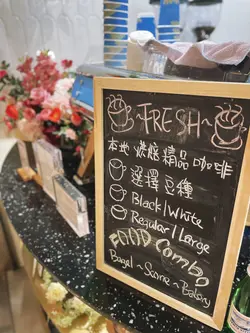 ~FRESH~
本地烘焙精品咖啡
選擇豆種
Black/White
Regular/Large
FOOD Combo
Bagel~Scone~Bakery